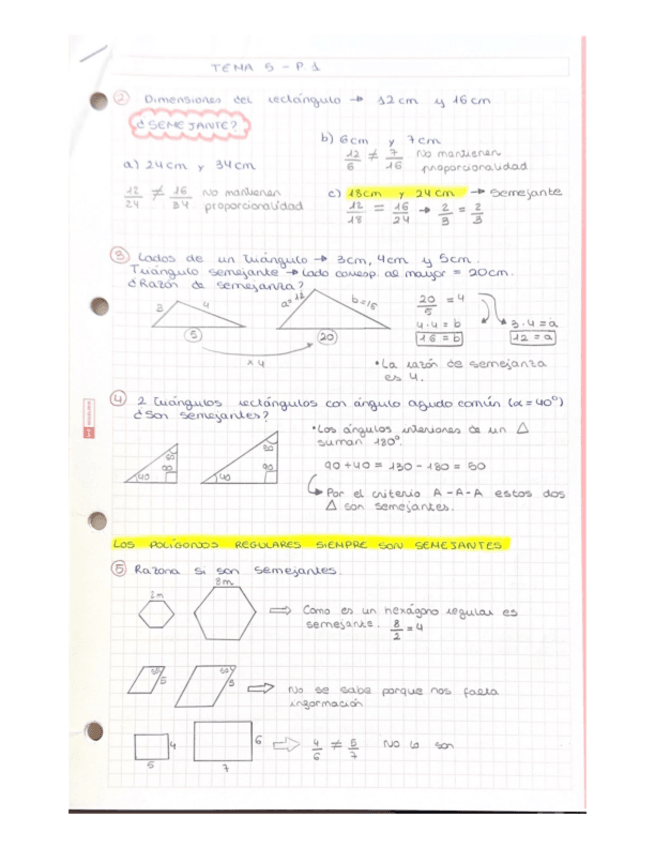 TEMA 5 - P.1
② Dimensiones del rectángulo → 12cm y 16cm
¿SEMEJANTE?
a) 24cm y 34cm
12/24 ≠ 16/34 no mantienen proporcionalidad
b) 6cm y 7cm
12/6 ≠ 7/16 no mantienen proporcionalidad
c) 18cm y 24cm → semejante
12/18 = 16/24 → 2/3 = 2/3
③ Lados de un triángulo → 3cm, 4cm y 5cm.
Triángulo semejante → Lado corresp. al mayor = 20cm.
¿Razón de semejanza?
3 4 5
a=12 b=16 20
x 4
20/5 = 4
4·4 = b
16 = b
3·4 = a
12 = a
•La razón de semejanza
es 4.
④ 2 triángulos rectángulos con ángulo agudo común (α=40°)
¿Son semejantes?
40 90
40 90
•Los ángulos interiores de un △
suman 180°.
90+40 = 130 - 180 = 50
Por el criterio A-A-A estos dos
△ son semejantes.
LOS POLÍGONOS REGULARES SIEMPRE SON SEMEJANTES
⑤ Razona si son semejantes.
2m 8m
Como es un hexágono regular es
semejante. 8/2 = 4
5
No se sabe porque nos falta
información
4 5
6 7
4/6 ≠ 5/7 No lo son